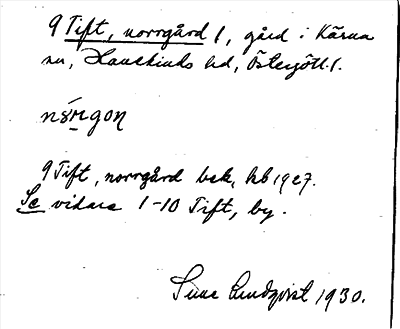 9 Tift, norrgård 1, gård i Kärna
sn, Hanekinds hd, Östergötl. l.
nǿrgon
9 Tift, norrgård bsk, kb 1927.
Se vidare 1-10 Tift, by.
Sune Lindqvist 1930.